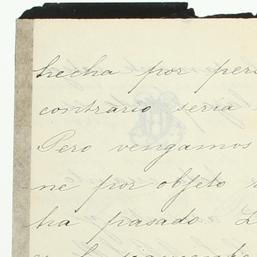 hecha por per
contrario seria
Pero vengamos
ne por objeto
ha pasado. L